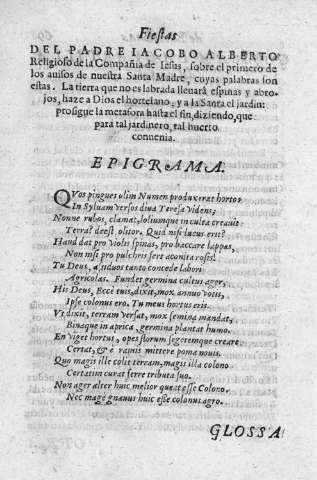 Fiestas
DEL PADRE IACOBO ALBERTO
Religioso de la Compañia de Iesus, sobre el primero de
los auisos de nuestra Santa Madre, cuyas palabras son
estas. La tierra que no es labrada lleuarà espinas y abro-
jos, haze a Dios el hortelano, y a la Santa el jardin:
prosigue la metafora hasta el fin, diziendo, que
para tal jardinero, tal huerto
conuenia.
EPIGRAMA.
QVos pingues olim Numen produxerat hortos
In Syluam versos diua Teresa videns;
Nonne rubos, clamat, loliumque in culta creauit
Terra? deest olitor. Quid nisi lucus erit?
Haud dat pro violis spinas, pro baccare lappas,
Non nisi pro pulchris fert aconita rosis!
Tu Deus, assiduos tanto concede labori
Agricolas. Fundet germina cultus ager,
His Deus, Ecce tuis, dixit, mox annuo votis,
Ipse colonus ero. Tu meus hortus eris.
Vt dixit, terram versat, mox semina mandat,
Binaque in aprica, germina plantat humo.
En viget hortus, opes florum segetemque creare
Certat, & è ramis mittere poma nouis.
Quo magis ille colit terram, magis illa colono
Certatim curat ferre tributa suo.
Non ager alter huic melior queat esse Colono,
Nec magè gnauus huic esse colonus agro.
GLOSSA